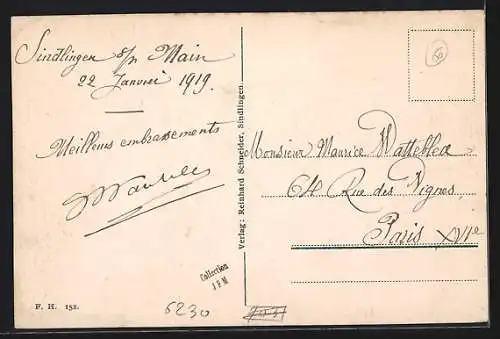 Sindlingen s/m Main
22 Janvier 1919.
Meilleurs embrassements
Verlag: Reinhard Schneider, Sindlingen.
Monsieur Maurice Watteblea
64 Rue des Vignes
Paris XVIe
Collection
JFM
F. H. 152.
6230